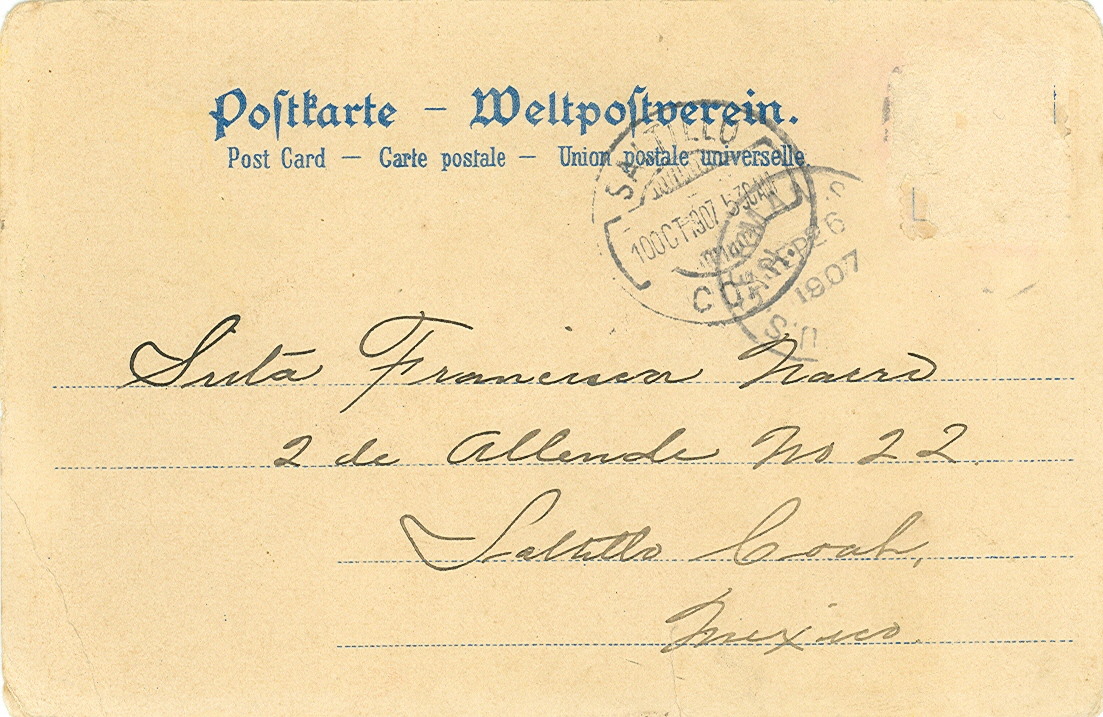 Postkarte – Weltpostverein.
Post Card – Carte postale – Union postale universelle
SALTILLO
10 OCT 1907 5 30 AM
COAH.
6
1907
U.S.
Srita Francisca
2 de Allende No 22.
Saltillo Coah,
Mexico.